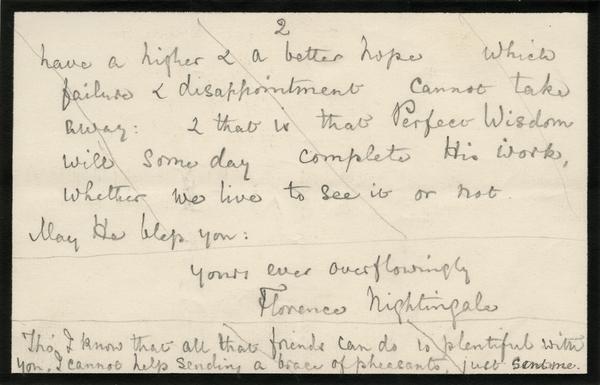 2
have a higher & a better hope which
failure & disappointment cannot take
away: & that is that Perfect Wisdom
will some day complete His work,
whether we live to see it or not.
May He bless you:
yours ever overflowingly
Florence Nightingale
Tho' I know that all that friends can do is plentiful with
you, I cannot help sending a brace of pheasants, just sent me.